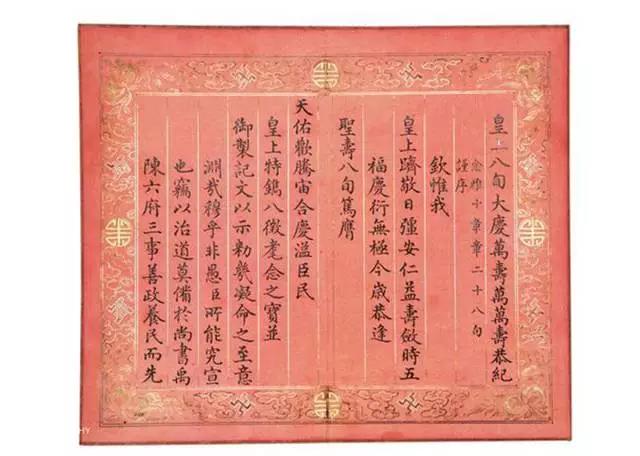 皇上八旬大慶萬壽萬萬壽恭紀
念雅十章章二十八句
謹序
欽惟我
皇上躋敬日彊安仁益壽斂時五
福慶衍無極今歲恭逢
聖壽八旬篤膺
天佑歡騰宙合慶溢臣民
皇上特鐫八徵耄念之寶並
御製記文以示勑幾凝命之至意
淵哉穆乎非愚臣所能究宣
也竊以治道莫備於尚書禹
陳六府三事善政養民而先
HY